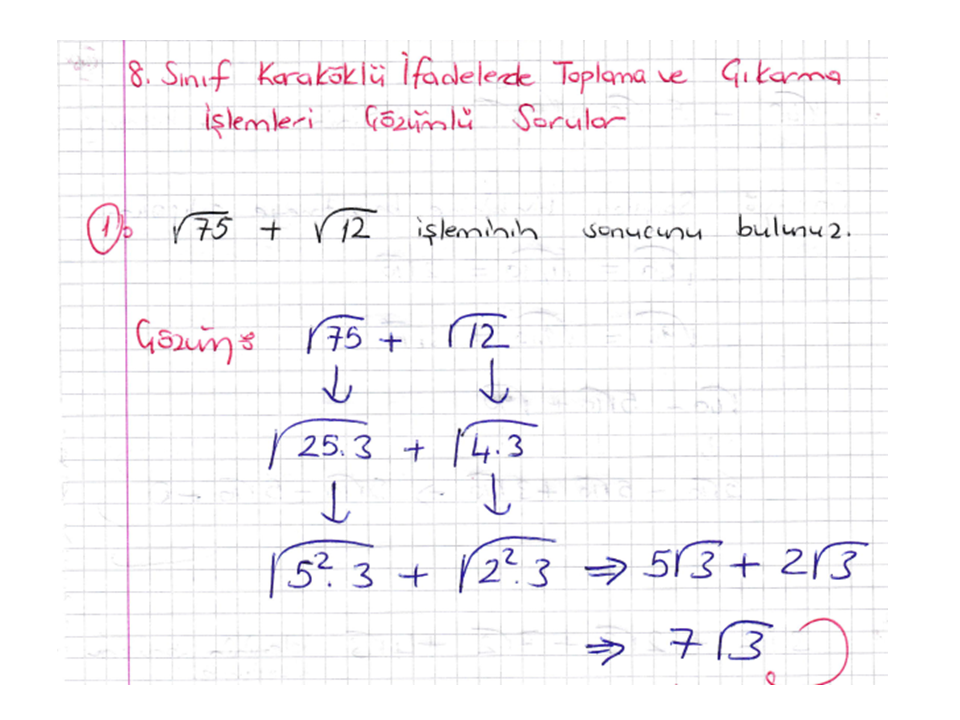 8. Sınıf Kareköklü İfadelerde Toplama ve Çıkarma
İşlemleri Çözümlü Sorular
1) √75 + √12 işleminin sonucunu bulunuz.
Çözüm: √75 + √12
↓ ↓
√25.3 + √4.3
↓ ↓
√5².3 + √2².3 ⇒ 5√3 + 2√3
⇒ 7√3